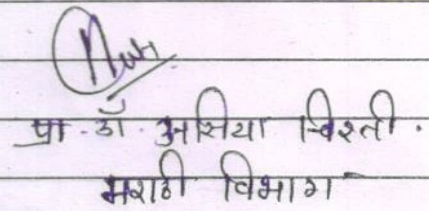 प्रा. डॉ. असिया चिश्ती.
मराठी विभाग